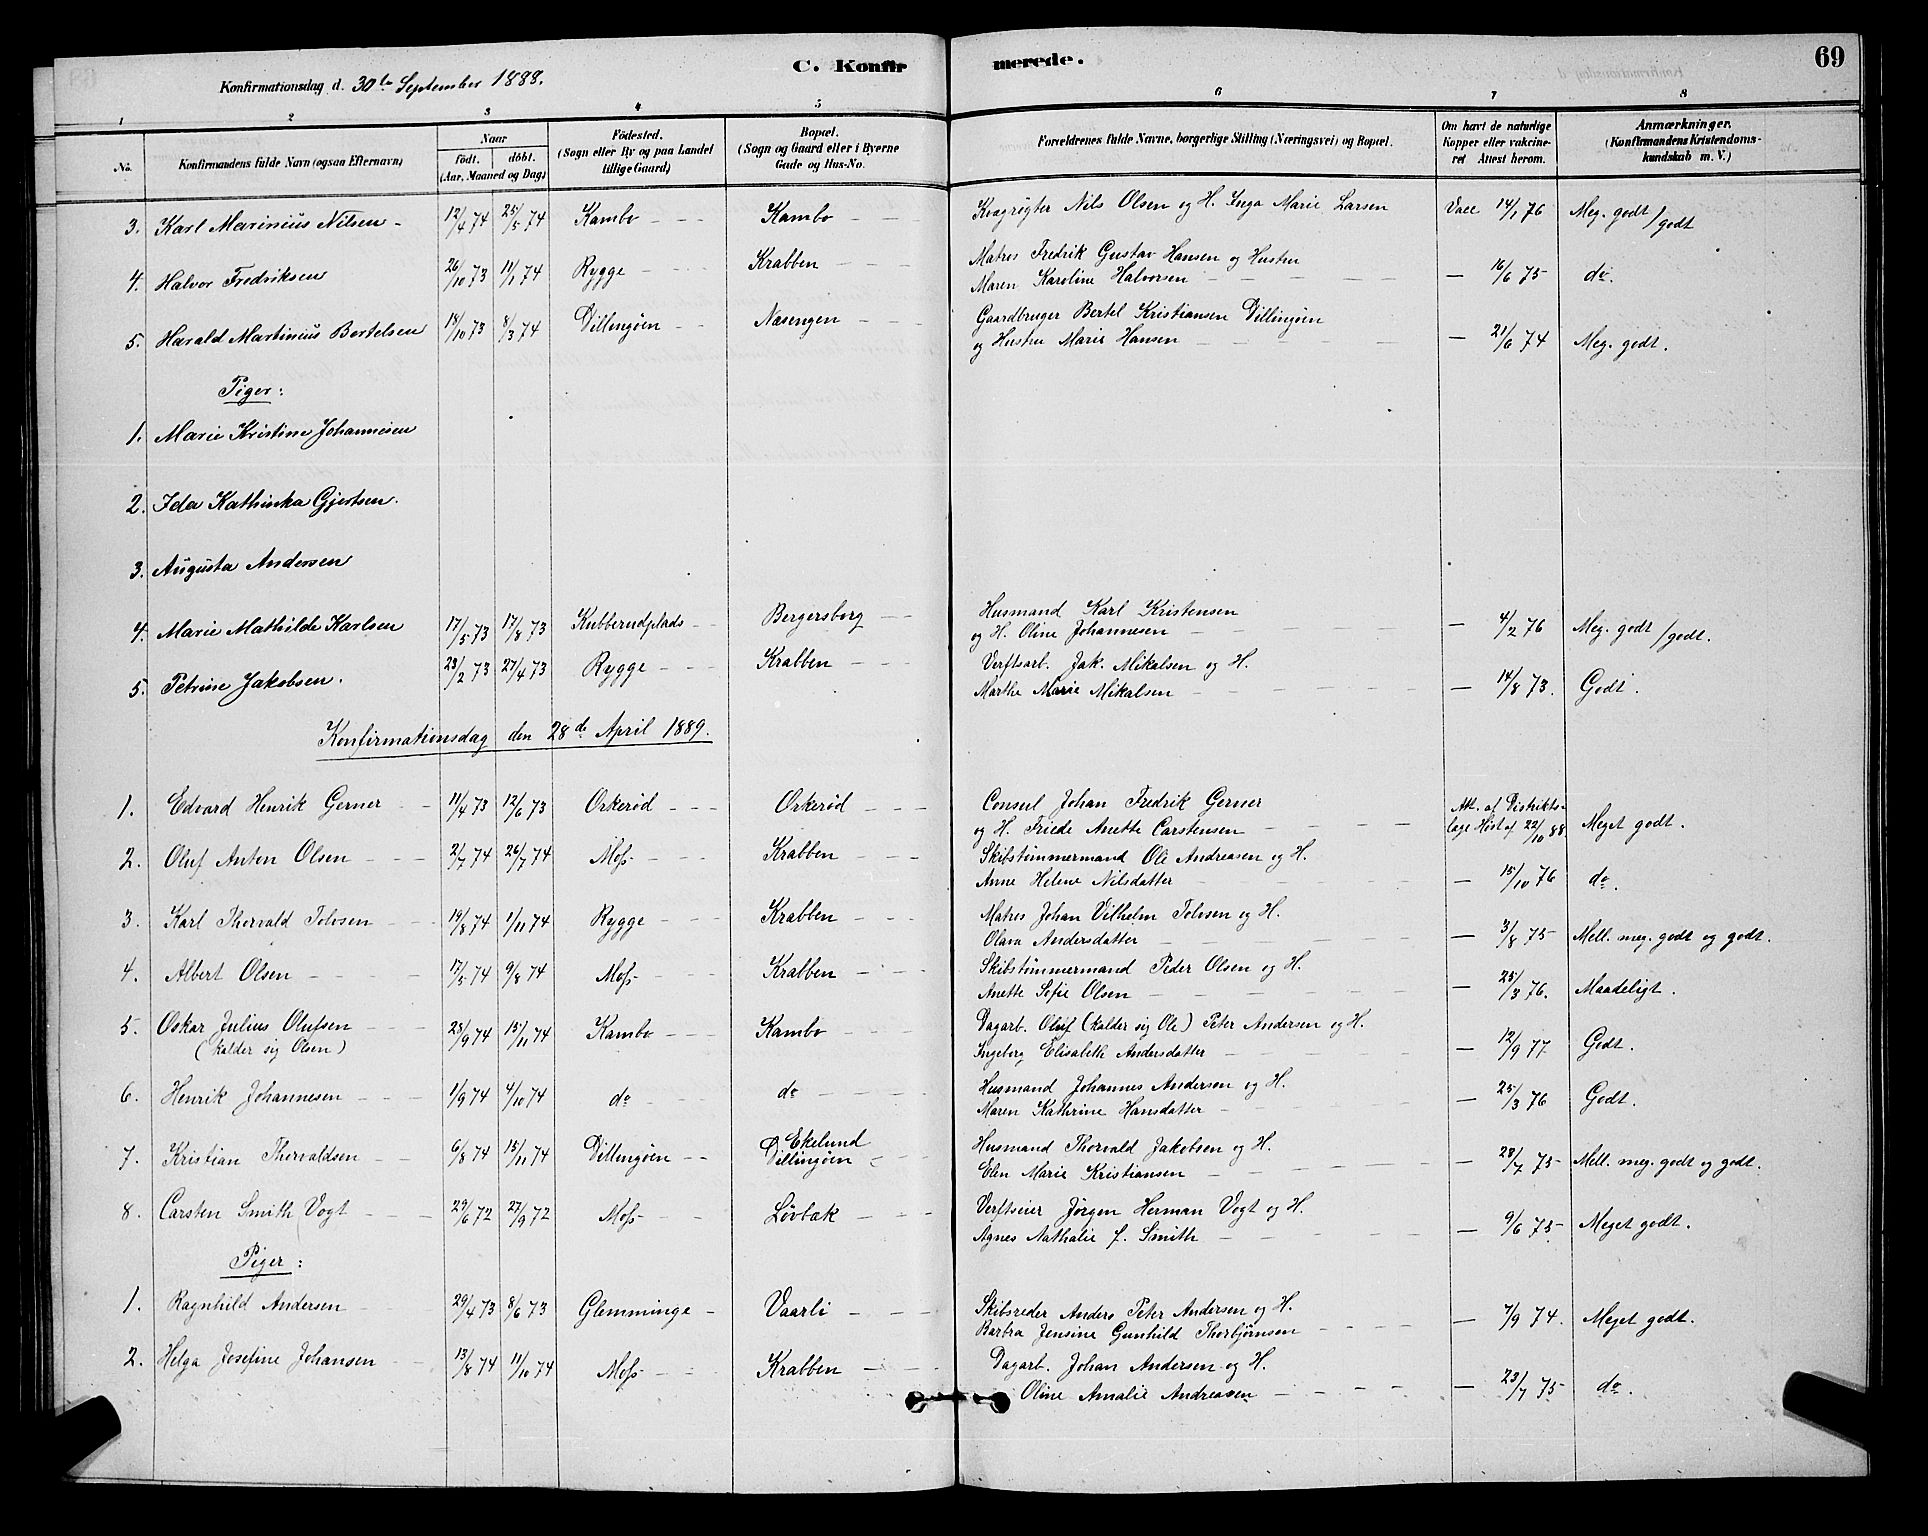 C. Konfirmerede. 69
Konfirmationsdag d. 30te September 1888.
1 2 3 4 5 6 7 8
No. Konfirmandens fulde Navn (ogsaa Efternavn) Naar födt. döbt. (Aar, Maaned og Dag) Födested. (Sogn eller By og paa Landet tillige Gaard) Bopæl. (Sogn og Gaard eller i Byerne Gade og Hus-No. Forældrenes fulde Navne, borgerlige Stilling (Næringsvei) og Bopæl. Om havt de naturlige Kopper eller vakcineret Attest herom. Anmærkninger. (Konfirmandens Kristendomskundskab m. V.)
3. Karl Marinius Nilsen - 12/4 74 25/5 74 Kambo Kambo Kvægrøgter Nils Olsen og H. Inga Marie Larsen Vacc 14/1 76 Meg. godt/godt
4. Halvor Fredriksen 26/10 73 11/1 74 Rygge Krabben Matros Fredrik Gustav Hansen og Hustru
Maren Karoline Halvorsen — 16/6 75 do.
5. Harald Martinius Bertelsen 18/10 73 8/3 74 Dillingøen Næsengen Gaardbruger Bertel Kristiansen Dillingøen
og Hustru Marie Hansen — 21/6 74 Meg. godt.
Piger:
1. Marie Kristine Johannesen
2. Ida Kathinka Gjertsen.
3. Augusta Andersen
4. Marie Mathilde Karlsen 17/5 73 17/8 73 Kubberudplads Bergersborg Husmand Karl Kristensen
og H. Oline Johannesen — 4/2 76 Meg. godt/godt.
5. Petrine Jakobsen. 23/2 73 27/4 73 Rygge Krabben Verftsarb. Jak. Mikalsen og H.
Marthe Marie Mikalsen — 14/8 73. Godt.
Konfirmationsdag den 28de April 1889.
1. Edvard Henrik Gerner 11/4 73 12/6 73 Orkerød Orkerød Consul Johan Fredrik Gerner
og H. Friede Anette Carstensen Att. af Distriktslæge Høst af 22/10 88. Meget godt.
2. Oluf Anton Olsen 2/7 74 26/7 74 Moss Krabben Skibstømmermand Ole Andreasen og H.
Anne Helene Nilsdatter — 15/10 76 do.
3. Karl Thorvald Tolvsen 19/8 74 1/11 74 Rygge Krabben Matros Johan Vilhelm Tolvsen og H.
Olava Andersdatter — 3/8 75 Mell. meg. godt og godt.
4. Albert Olsen 17/5 74 9/8 74 Moss Krabben Skibstømmermand Peder Olsen og H.
Anette Sofie Olsen — 25/3 76. Maadeligt.
5. Oskar Julius Olufsen 25/9 74 15/11 74 Kambo Kambo Dagarb. Oluf (kalder sig Ole) Peter Andersen og H.
(kalder sig Olsen) Ingeborg Elisabeth Andersdatter — 12/9 77 Godt.
6. Henrik Johannesen 1/9 74 4/10 74 do do Husmand Johannes Andersen og H.
Maren Kathrine Hansdatter — 25/3 76 Godt.
7. Kristian Thorvaldsen 6/8 74 15/11 74 Dillingøen Ekelund Dillingøen Husmand Thorvald Jakobsen og H.
Elen Marie Kristiansen — 28/7 75 Mell. meg. godt og godt.
8. Carsten Smith Vogt 29/6 72 27/9 72 Moss Løvbak Verftseier Jørgen Herman Vogt og H.
Agnes Nathalie f. Smith — 9/6 75 Meget godt.
Piger:
1. Ragnhild Andersen 29/4 73 8/6 73 Glemminge Vaarli Skibsreder Anders Peter Andersen og H.
Barbra Jensine Gunhild Thorbjørnsen — 7/9 74. Meget godt.
2. Helga Josefine Johansen 13/8 74 11/10 74 Moss Krabben Dagarb. Johan Andersen og H.
Oline Amalie Andreasen — 23/7 75 do.